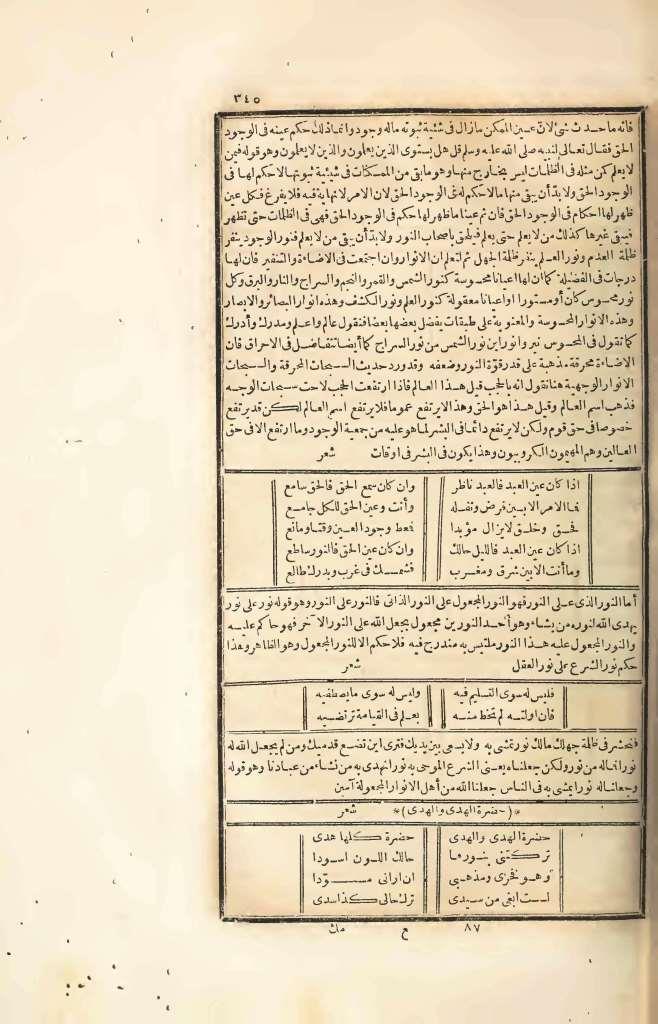 ٣٤٥
فانه ما حدث شئ لان عين الممكن مازال فى شيئية ثبوته ماله وجود وانما ذلك حكم عينه فى الوجود
الحق فقال تعالى لنبيه صلى الله عليه وسلم قل هل يستوى الذين يعلمون والذين لا يعلمون وهو قوله فيمن
لا يعلم كمن مثله فى الظلمات ليس بخارج منها وهو ما بقى من الممكنات فى شيئية ثبوتها لا حكم لها فى
الوجود الحق ولا بد أن يبقى منها ما لا حكم له فى الوجود الحق لان الامر لا نهاية فيه فلا يفرغ فكل عين
ظهر لها احكام فى الوجود الحق فان ثم عينا ما ظهر لها حكم فى الوجود الحق فهى فى الظلمات حتى تظهر
فيبقى غيرها كذلك من لا يعلم حتى يعلم فيلحق باصحاب النور ولا بد أن يبقى من لا يعلم فنور الوجود ينفر
ظلمة العدم ونور العلم ينفر ظلمة الجهل ثم لتعلم ان الانوار وان اجتمعت فى الاضاءة والتنفير فان لها
درجات فى الفضيلة كما ان لها اعيانا محسوسة كنور الشمس والقمر والنجم والسراج والنار والبرق وكل
نور محسوس كان أو مستورا او اعيانا معقولة كنور العلم ونور الكشف وهذه انوار البصائر والابصار
وهذه الانوار المحسوسة والمعنوية على طبقات يفضل بعضها بعضا فنقول عالم واعلم ومدرك وأدرك
كما تقول فى المحسوس نير وانور اين نور الشمس من نور السراج كما أيضا تتفاضل فى الاحراق فان
الاضاءة محرقة مذهبة على قدر قوة النور وضعفه وقد ورد حديث السبحات المحرقة والسبحات
الانوار الوجهية هنا تقول انه بالحجب قيل هذا العالم فاذا ارتفعت الحجب لاحت سبحات الوجه
فذهب اسم العالم وقيل هذا هو الحق وهذا لا يرتفع عموما فلا يرتفع اسم العالم لكن قد يرتفع
خصوصا فى حق قوم ولكن لا يرتفع دائما فى البشر لما هو عليه من جمعية الوجود وما ارتفع الا فى حق
العالين وهم المهيمون الكروبيون وهذا يكون فى البشر فى اوقات شعر
اذا كان عين العبد فالعبد ناظر وان كان سمع الحق فالحق سامع
فما الامر الا بين فرض ونفله وأنت وعين الحق للكل جامع
فحق وخلق لا يزال مؤبدا فعط وجود العين وقتا ومانع
اذا كان عين العبد فالليل حالك وان كان عين الحق فالنور ساطع
وما أنت الا بين شرق ومغرب فشمسك فى غرب وبدرك طالع
أما النور الذى على النور فهو النور المجعول على النور الذاتى فالنور على النور وهو قوله نور على نور
يهدى الله لنوره من يشاء وهو أحد النورين مجعول يجعل الله على النور الآخر فهو حاكم عليه
والنور المجعول عليه هذا النور ملتبس به مندرج فيه فلا حكم الا للنور المجعول وهو الظاهر وهذا
حكم نور الشرع على نور العقل شعر
فليس له سوى التسليم فيه وليس له سوى ما يصطفيه
فان اولته لم تحظ منه بعلم فى القيامة ترتضيه
فتحشر فى ظلمة جهلك مالك نور تمشى به ولا يسعى بين يديك فترى اين تضع قدميك ومن لم يجعل الله له
نورا فما له من نور ولكن جعلناه يعنى الشرع الموحى به نورا نهدى به من نشاء من عبادنا وهو قوله
وجعلنا له نورا يمشى به فى الناس جعلنا الله من أهل الانوار المجعولة آمين
*(حضرة الهدى والهدى)* شعر
حضرة الهدى والهدى حضرة كلها هدى
تركتنى بنورها حالك اللون اسودا
وهو فخرى ومذهبى ان ارانى مسودا
لست ابغى من سيدى ترك حالى كذا سدى
٨٧ ع مك